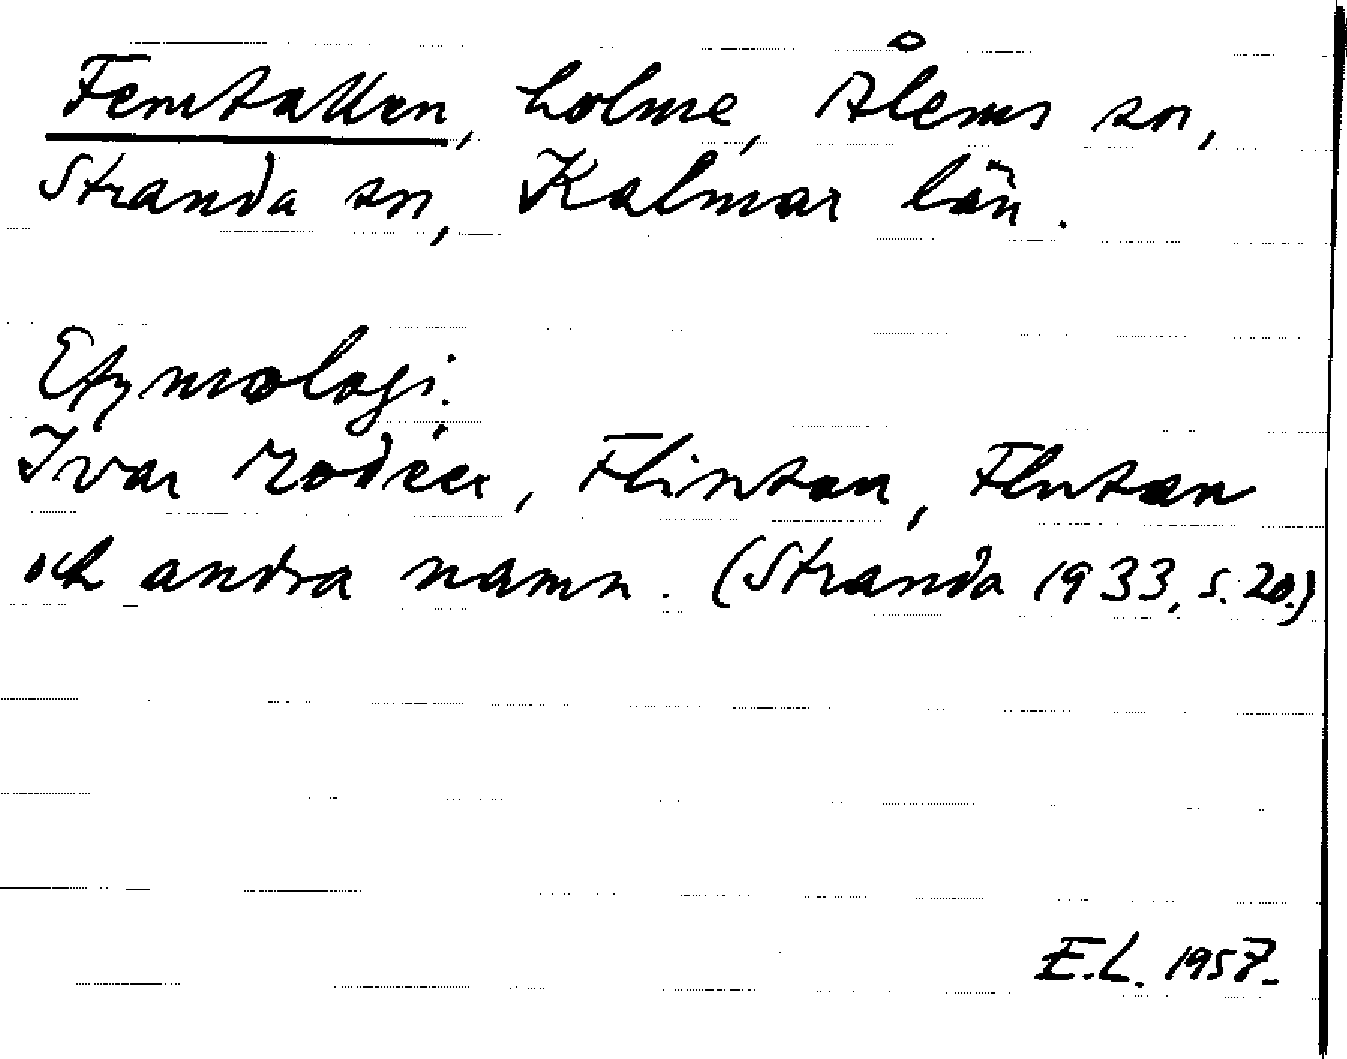 Femtallen, holme, Ålems sn,
Stranda sn, Kalmar län.
Etymologi.
Ivar Modéer, Flintan, Flutan
och andra namn. (Stranda 1933, s. 20.)
E.L. 1957.